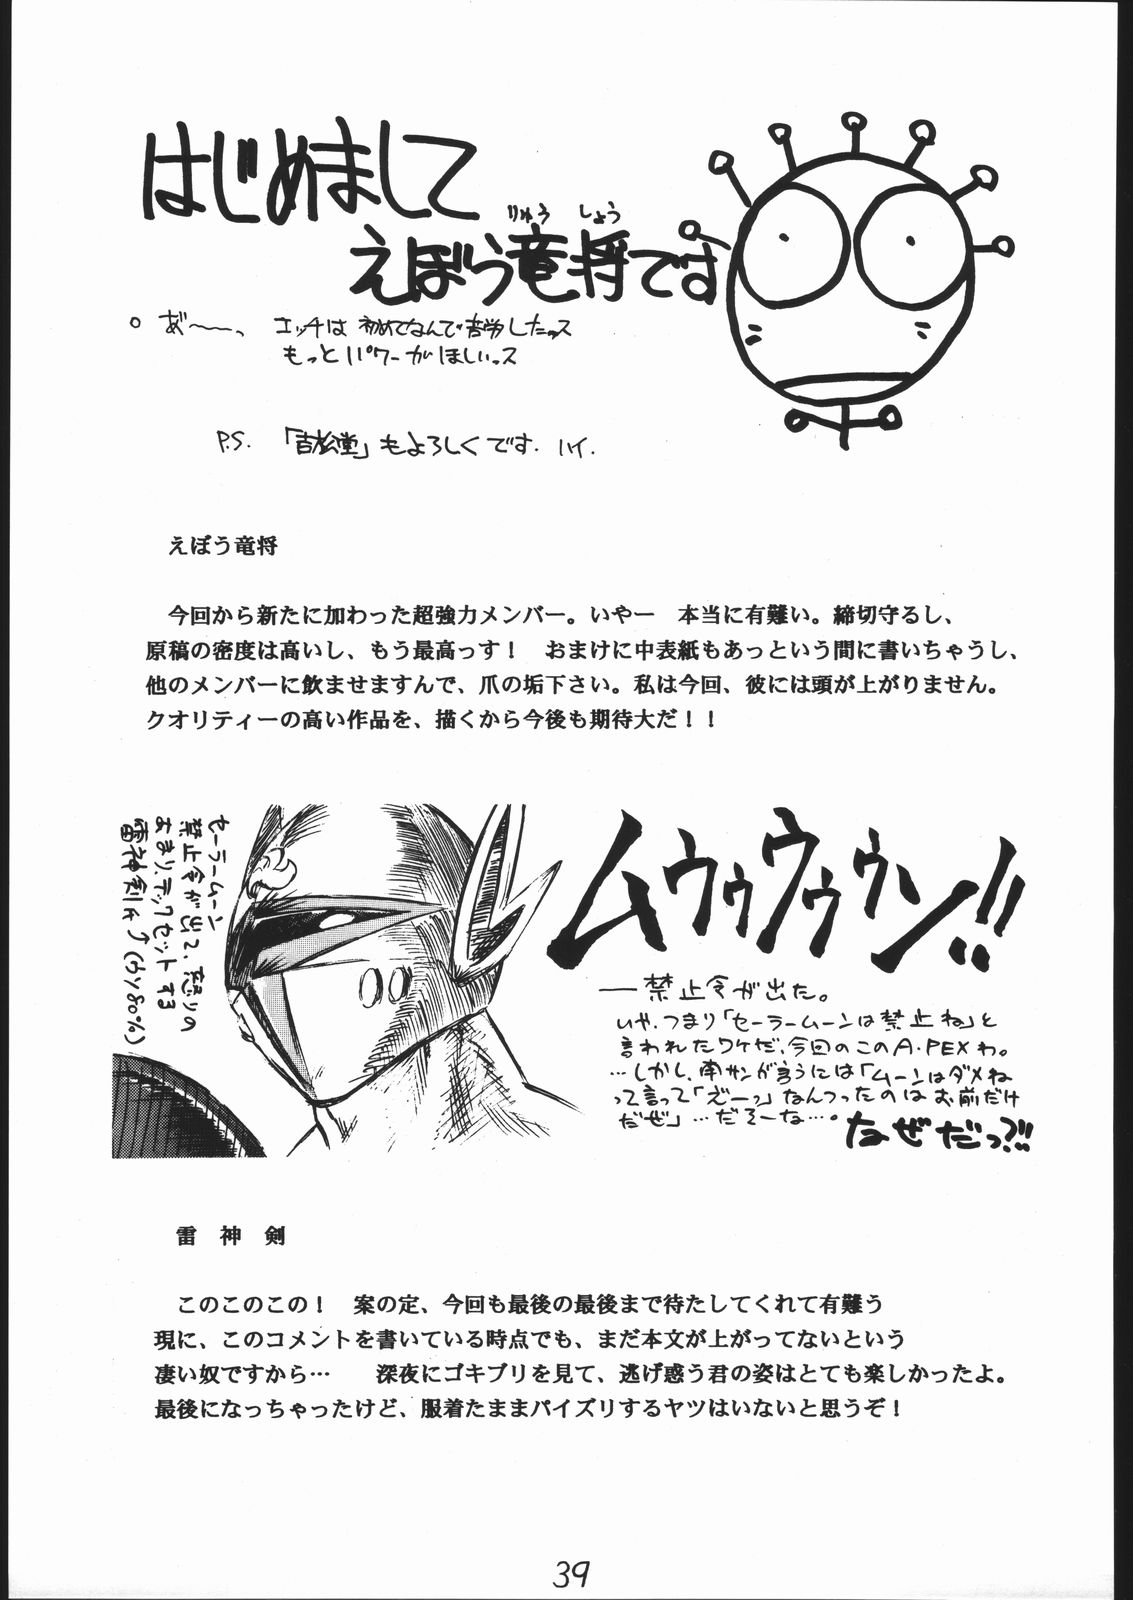 はじめまして
りゅう しょう
えぼう竜将です
。あ゛〜〜っ エッチは初めてなんで苦労したっス
もっとパワーがほしいっス
P.S. 「吉松堂」もよろしくです. ハイ.
えぼう竜将
今回から新たに加わった超強力メンバー。いやー　本当に有難い。締切守るし、
原稿の密度は高いし、もう最高っす！　おまけに中表紙もあっという間に書いちゃうし、
他のメンバーに飲ませますんで、爪の垢下さい。私は今回、彼には頭が上がりません。
クオリティーの高い作品を、描くから今後も期待大だ！！
セーラームーン
禁止令が出て、怒りの
あまり、テックセットする
雷神剣氏⤴(ウソ80%)
ムウゥウゥウン!!
—禁止令が出た。
いや、つまり「セーラームーンは禁止ね」と
言われたワケだ、今回のこのA・PEXわ。
…しかし、南サンが言うには「ムーンはダメね
って言って「え゛ーッ」なんつったのはお前だけ
だぜ」…だそーな…。
なぜだっ?!!
雷　神　剣
このこのこの！　案の定、今回も最後の最後まで待たしてくれて有難う
現に、このコメントを書いている時点でも、まだ本文が上がってないという
凄い奴ですから…　　深夜にゴキブリを見て、逃げ惑う君の姿はとても楽しかったよ。
最後になっちゃったけど、服着たままパイズリするヤツはいないと思うぞ！
39